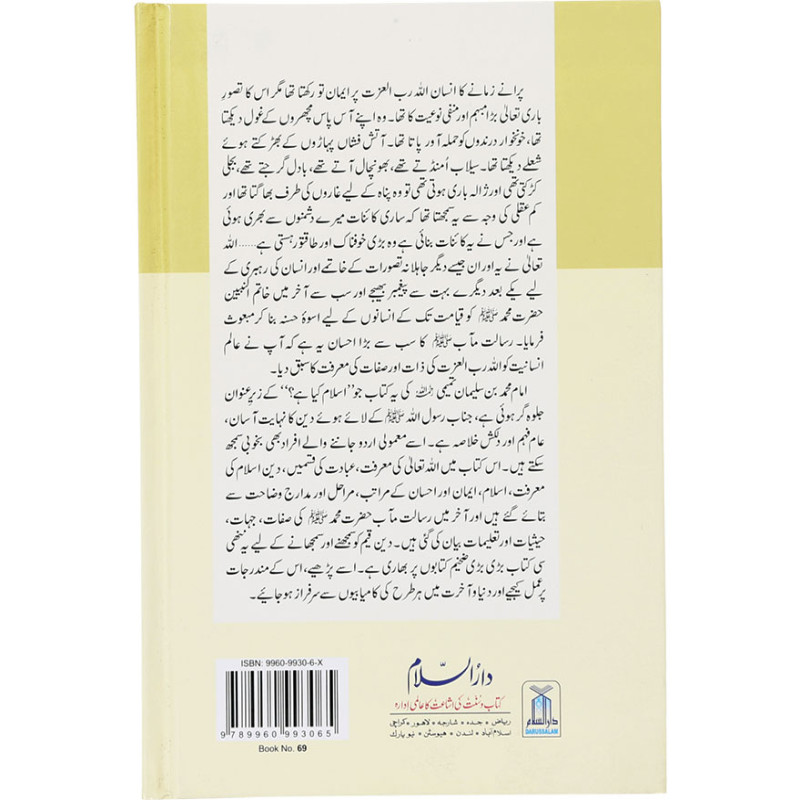 پرانے زمانے کا انسان اللہ رب العزت پر ایمان تو رکھتا تھا مگر اس کا تصورِ
باری تعالیٰ بڑا مبہم اور منفی نوعیت کا تھا۔ وہ اپنے آس پاس مچھروں کے غول دیکھتا
تھا، خونخوار درندوں کو حملہ آور پاتا تھا۔ آتش فشاں پہاڑوں کے بھڑکتے ہوئے
شعلے دیکھتا تھا۔ سیلاب اُمنڈتے تھے، بھونچال آتے تھے، بادل گرجتے تھے، بجلی
کڑکتی تھی اور ژالہ باری ہوتی تھی تو وہ پناہ کے لیے غاروں کی طرف بھاگتا تھا اور
کم عقلی کی وجہ سے یہ سمجھتا تھا کہ ساری کائنات میرے دشمنوں سے بھری ہوئی
ہے اور جس نے یہ کائنات بنائی ہے وہ بڑی خوفناک اور طاقتور ہستی ہے...... اللہ
تعالیٰ نے یہ اور ان جیسے دیگر جاہلانہ تصورات کے خاتمے اور انسان کی رہبری کے
لیے یکے بعد دیگرے بہت سے پیغمبر بھیجے اور سب سے آخر میں خاتم النبیین
حضرت محمد ﷺ کو قیامت تک کے انسانوں کے لیے اسوۂ حسنہ بنا کر مبعوث
فرمایا۔ رسالت مآب ﷺ کا سب سے بڑا احسان یہ ہے کہ آپ نے عالم
انسانیت کو اللہ رب العزت کی ذات اور صفات کی معرفت کا سبق دیا۔
امام محمد بن سلیمان تمیمی رحمہ اللہ کی یہ کتاب جو ”اسلام کیا ہے؟“ کے زیرِ عنوان
جلوہ گر ہوئی ہے، جناب رسول اللہ ﷺ کے لائے ہوئے دین کا نہایت آسان،
عام فہم اور دلکش خلاصہ ہے۔ اسے معمولی اردو جاننے والے افراد بھی بخوبی سمجھ
سکتے ہیں۔ اس کتاب میں اللہ تعالیٰ کی معرفت، عبادت کی قسمیں، دین اسلام کی
معرفت، اسلام، ایمان اور احسان کے مراتب، مراحل اور مدارج وضاحت سے
بتائے گئے ہیں اور آخر میں رسالت مآب حضرت محمد ﷺ کی صفات، جہات،
حیثیات اور تعلیمات بیان کی گئی ہیں۔ دین قیم کو سمجھنے اور سمجھانے کے لیے یہ ننھی
سی کتاب بڑی بڑی ضخیم کتابوں پر بھاری ہے۔ اسے پڑھیے، اس کے مندرجات
پر عمل کیجیے اور دنیا و آخرت میں ہر طرح کی کامیابیوں سے سرفراز ہو جائیے۔
ISBN: 9960-9930-6-X
9 789960 993065
Book No. 69
دارُالسّلام
کتاب و سُنّت کی اشاعت کا عالمی ادارہ
ریاض • جدہ • شارجہ • لاہور • کراچی
اسلام آباد • لندن • ہیوسٹن • نیو یارک
دارالسلام
DARUSSALAM